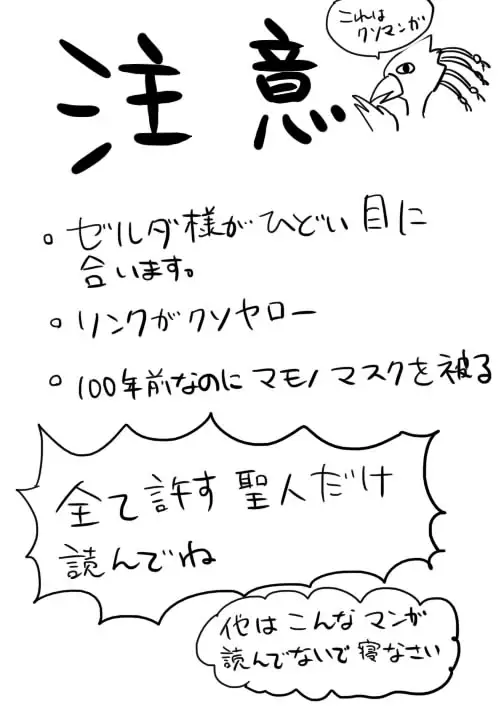 注意
これは
クソマンガ
○ゼルダ様がひどい目に
合います。
○リンクがクソヤロー
○100年前なのにマモノマスクを被る
全て許す聖人だけ
読んでね
他はこんなマンガ
読んでないで寝なさい